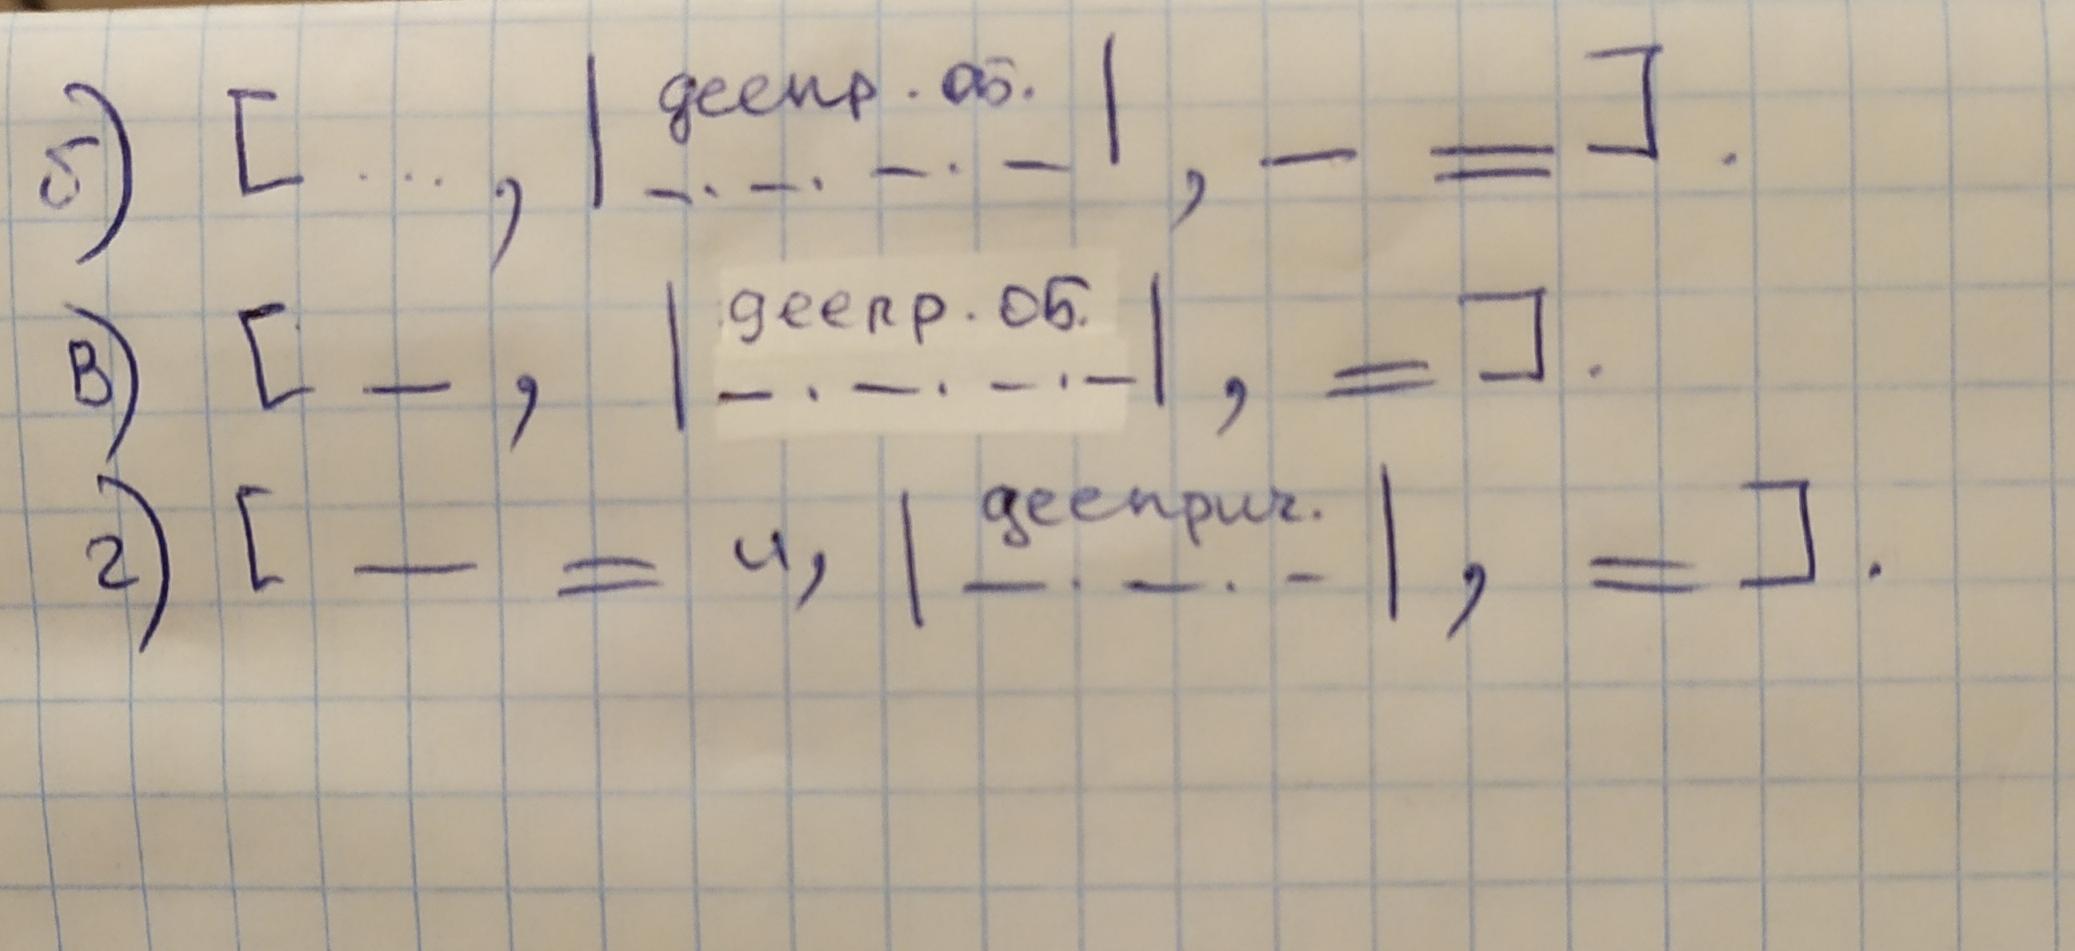 б) [ ... , | деепр. об. | , — = ] .
в) [ — , | деепр. об. | , = ] .
г) [ — = и, | дееприч. | , = ] .